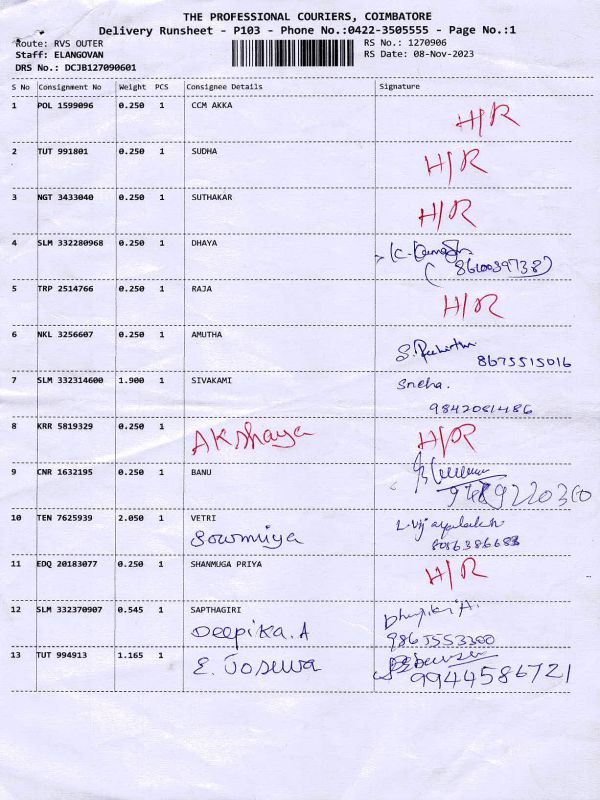 THE PROFESSIONAL COURIERS, COIMBATORE
Delivery Runsheet - P103 - Phone No.:0422-3505555 - Page No.:1
Route: RVS OUTER RS No.: 1270906
Staff: ELANGOVAN RS Date: 08-Nov-2023
DRS No.: DCJB127090601
S No Consignment No Weight PCS Consignee Details Signature
1 POL 1599096 0.250 1 CCM AKKA H/R
2 TUT 991801 0.250 1 SUDHA H/R
3 NGT 3433040 0.250 1 SUTHAKAR H/R
4 SLM 332280968 0.250 1 DHAYA
5 TRP 2514766 0.250 1 RAJA H/R
6 NKL 3256607 0.250 1 AMUTHA
8675515016
7 SLM 332314600 1.900 1 SIVAKAMI Sneha.
9842081486
8 KRR 5819329 0.250 1 AKshaya H/R
9 CNR 1632195 0.250 1 BANU
10 TEN 7625939 2.050 1 VETRI
Sowmiya
11 EDQ 20183077 0.250 1 SHANMUGA PRIYA H/R
12 SLM 332370907 0.545 1 SAPTHAGIRI
Deepika.A
13 TUT 994913 1.165 1 E. Josewa
9944586721